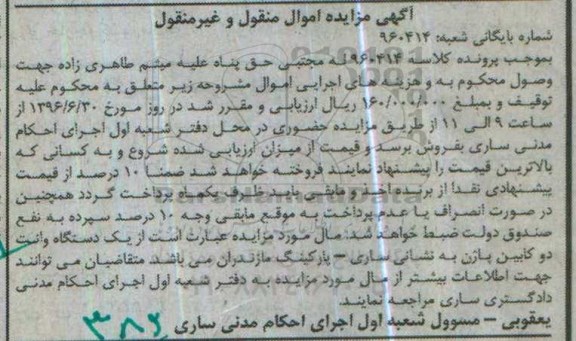 آگهی مزایده اموال منقول و غیرمنقول
شماره بایگانی شعبه: ۹۶۰۴۱۴
بموجب پرونده کلاسه ۹۶۰۴۱۴ له مجتبی حق پناه علیه میثم طاهری زاده جهت
وصول محکوم به و هزینه های اجرایی اموال مشروحه زیر متعلق به محکوم علیه
توقیف و بمبلغ ۱۶۰/۰۰۰/۰۰۰ ریال ارزیابی و مقرر شد در روز مورخ ۱۳۹۶/۶/۳۰ از
ساعت ۹ الی ۱۱ از طریق مزایده حضوری در محل دفتر شعبه اول اجرای احکام
مدنی ساری بفروش برسد و قیمت از میزان ارزیابی شده شروع و به کسانی که
بالاترین قیمت را پیشنهاد نمایند فروخته خواهد شد ضمنا ۱۰ درصد از قیمت
پیشنهادی نقدا از برنده اخذ و مابقی باید ظرف یکماه پرداخت گردد همچنین
در صورت انصراف یا عدم پرداخت به موقع مابقی وجه ۱۰ درصد سپرده به نفع
صندوق دولت ضبط خواهد شد. مال مورد مزایده عبارت است از یک دستگاه وانت
دو کابین پازن به نشانی ساری – پارکینگ مازندران می باشد متقاضیان می توانند
جهت اطلاعات بیشتر از مال مورد مزایده به دفتر شعبه اول اجرای احکام مدنی
دادگستری ساری مراجعه نمایند.
یعقوبی – مسوول شعبه اول اجرای احکام مدنی ساری
۳۸۶